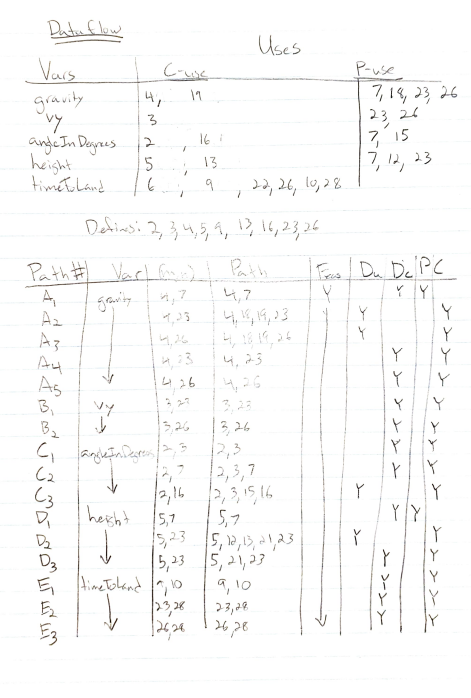 Dataflow
Uses
Vars C-use P-use
gravity 4, 19 7, 18, 23, 26
vy 3 23, 26
angleInDegrees 2, 16 7, 15
height 5, 13 7, 12, 23
timeToLand 6, 9, 22, 26, 10, 28
Defines: 2, 3, 4, 5, 9, 13, 16, 23, 26
Path# Var Path Feas Du Dc PC
A1 gravity 4,7 4,7 Y Y Y
A2 4,23 4,18,19,23 Y Y
A3 4,26 4,18,19,26 Y Y
A4 4,23 4,23 Y Y
A5 4,26 4,26 Y Y
B1 vy 3,23 3,23 Y Y
B2 3,26 3,26 Y Y
C1 angleInDegrees 2,3 2,3 Y Y
C2 2,7 2,3,7 Y Y
C3 2,16 2,3,15,16 Y Y
D1 height 5,7 5,7 Y Y
D2 5,23 5,12,13,21,23 Y Y
D3 5,23 5,21,23 Y Y
E1 timeToLand 9,10 9,10 Y Y
E2 23,28 23,28 Y Y
E3 26,28 26,28 Y Y